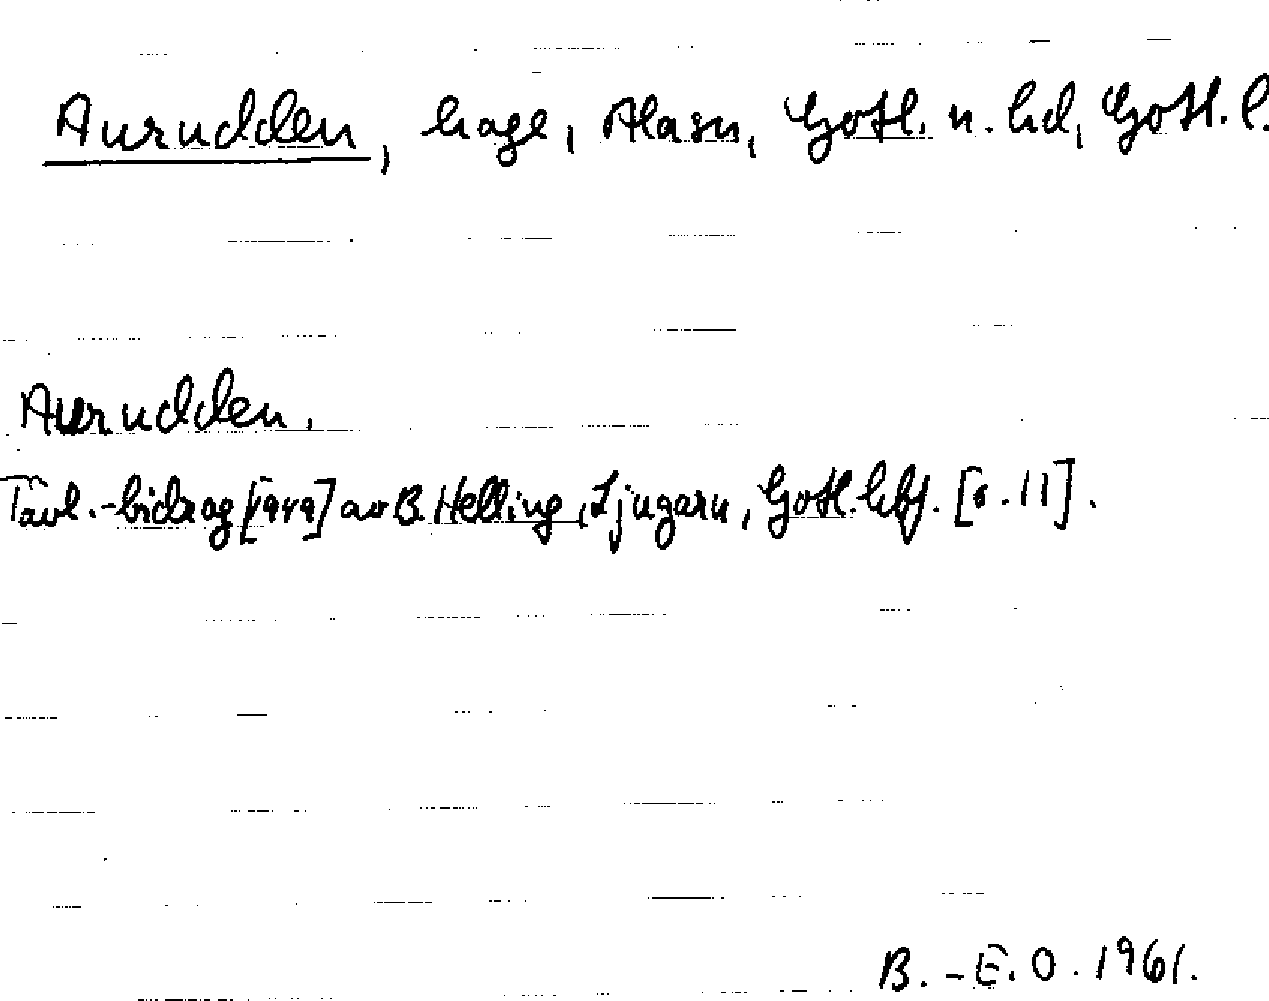 Aurudden, hage, Alskn, Gotl. n. hd, Gotl. l.
Aurudden.
Tävl.-bidrag [1949] av B. Helling, Ljugarn, Gotl. hbf. [s. 11].
B.-E. O. 1961.